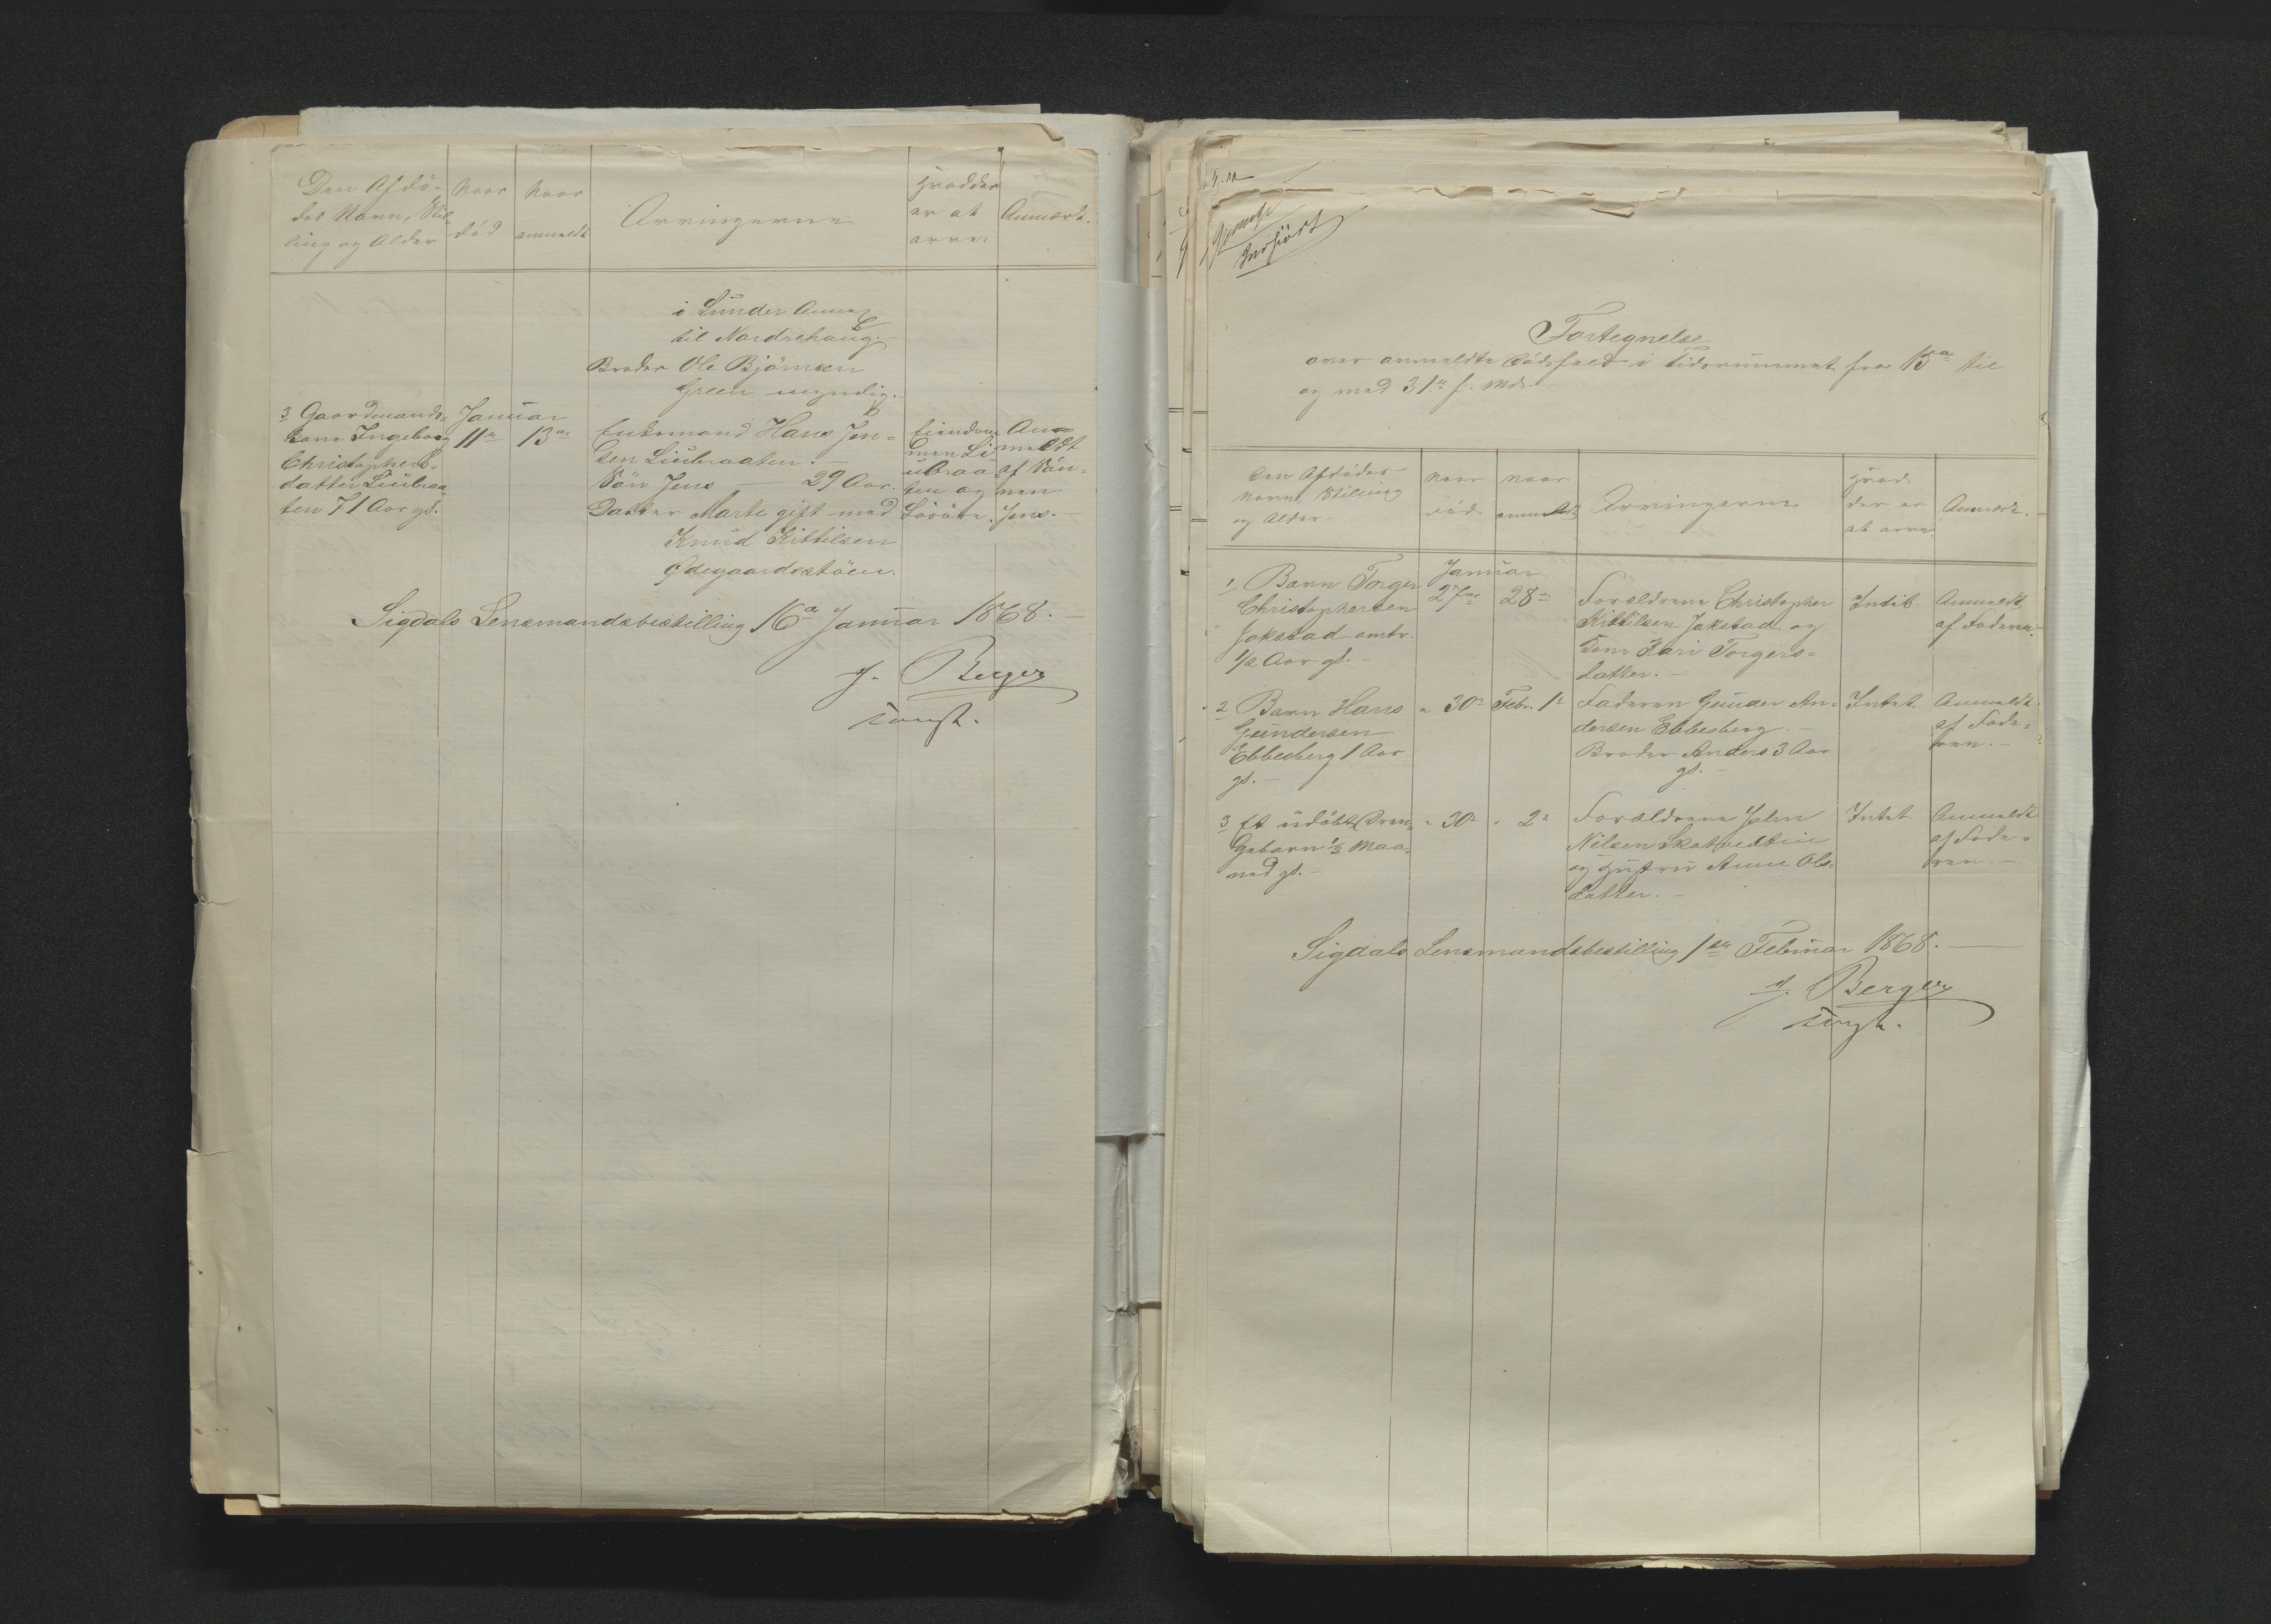 Den Afdö-
des Navn, Stil-
ling og Alder
Naar
död
Naar
anmeldt
Arvingerne
Hvad der
er at
arve.
Anmærk.
i Lunder Annex
til Nordrehaug.
Broder Ole Björnsen
Green myndig.
3 Gaardmands-
kone Ingeborg
Christophers-
datter Liübraa-
ten 71 Aar gl.
Januar
11te
13de
Enkemand Hans Jen-
sen Liübraaten.
Sön Jens — 29 Aar.
Datter Marte gift med
Knud Kittilsen
Ødegaardsstöen.
Eiendom-
men Li-
übraa-
ten og
Lösöre.
An-
meldt
af Sön-
nen
Jens.
Sigdals Lensmandsbestilling 16de Januar 1868.
J. Berger
const.
Indført
Fortegnelse
over anmeldte Dödsfald i Tidsrummet fra 15de til
og med 31te f. Md.
Den Afdödes
Navn, Stilling
og Alder.
Naar
död.
Naar
anmeldt
Arvingerne
Hvad
der er
at arve
Anmærk.
1 Barn Torger
Christophersen
Jokstad omtr.
1/2 Aar gl.
Januar
27de
28de
Forældrene Christopher
Kittilsen Jokstad og
Kone Kari Torgers-
datter.
Intet.
Anmeldt
af Faderen.
2 Barn Hans
Gundersen
Ebbesberg 1 Aar
gl.
" 30te
Febr. 1te
Faderen Gunder An-
dersen Ebbesberg.
Broder Anders 3 Aar
gl.
Intet
Anmeldt
af Fade-
ren.
3 Et udöbt Dren-
gebarn 1/2 Maa-
ned gl.
" 30te
" 2de
Forældrene John
Nilsen Skatvedteie
og Hustru Anne Ols-
datter.
Intet
Anmeldt
af Fade-
ren.
Sigdals Lensmandsbestilling 1ste Februar 1868.
J. Berger
const.